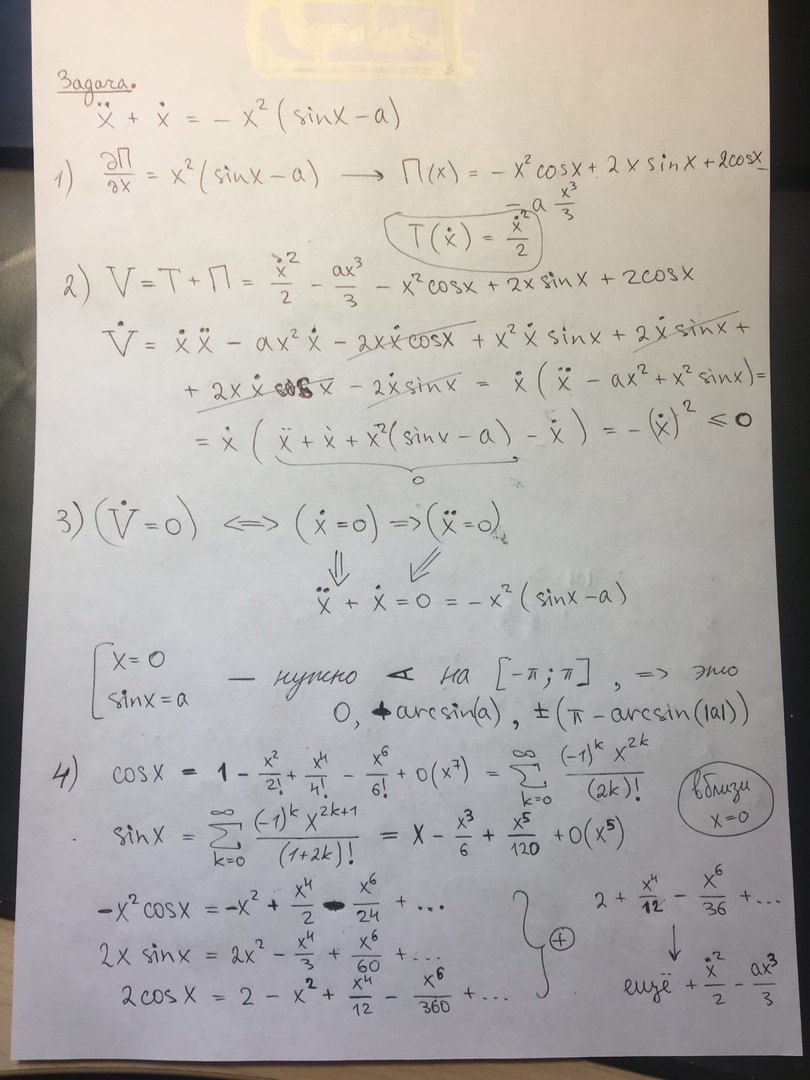 Задача.
ẍ + ẋ = - x² (sinx - a)
1) ∂Π/∂x = x² (sinx - a) → Π(x) = - x² cosx + 2x sinx + 2cosx -
- a x³/3
T(ẋ) = ẋ²/2
2) V = T + Π = ẋ²/2 - ax³/3 - x² cosx + 2x sinx + 2cosx
V̇ = ẋẍ - ax² ẋ - 2xẋ cosx + x² ẋ sinx + 2ẋ sinx +
+ 2x ẋ cos x - 2ẋ sinx = ẋ (ẍ - ax² + x² sinx) =
= ẋ (ẍ + ẋ + x² (sinx - a) - ẋ) = - (ẋ)² ≤ 0
0
3) (V̇ = 0) <=> (ẋ = 0) => (ẍ = 0)
⇓ ⇙
ẍ + ẋ = 0 = - x² (sinx - a)
[ x = 0
sinx = a — нужно ∢ на [-π; π], => это
0, +arcsin(a), ±(π - arcsin(|a|))
4) cosx = 1 - x²/2! + x⁴/4! - x⁶/6! + 0(x⁷) = ∑ k=0 ∞ (-1)ᵏ x²ᵏ/(2k)!
вблизи
x=0
sinx = ∑ k=0 ∞ (-1)ᵏ x²ᵏ⁺¹/(1+2k)! = x - x³/6 + x⁵/120 + 0(x⁵)
-x² cosx = -x² + x⁴/2 - x⁶/24 + ...
2x sinx = 2x² - x⁴/3 + x⁶/60 + ...
2cosx = 2 - x² + x⁴/12 - x⁶/360 + ...
} ⊕
2 + x⁴/12 - x⁶/36 + ...
↓
ещё + ẋ²/2 - ax³/3